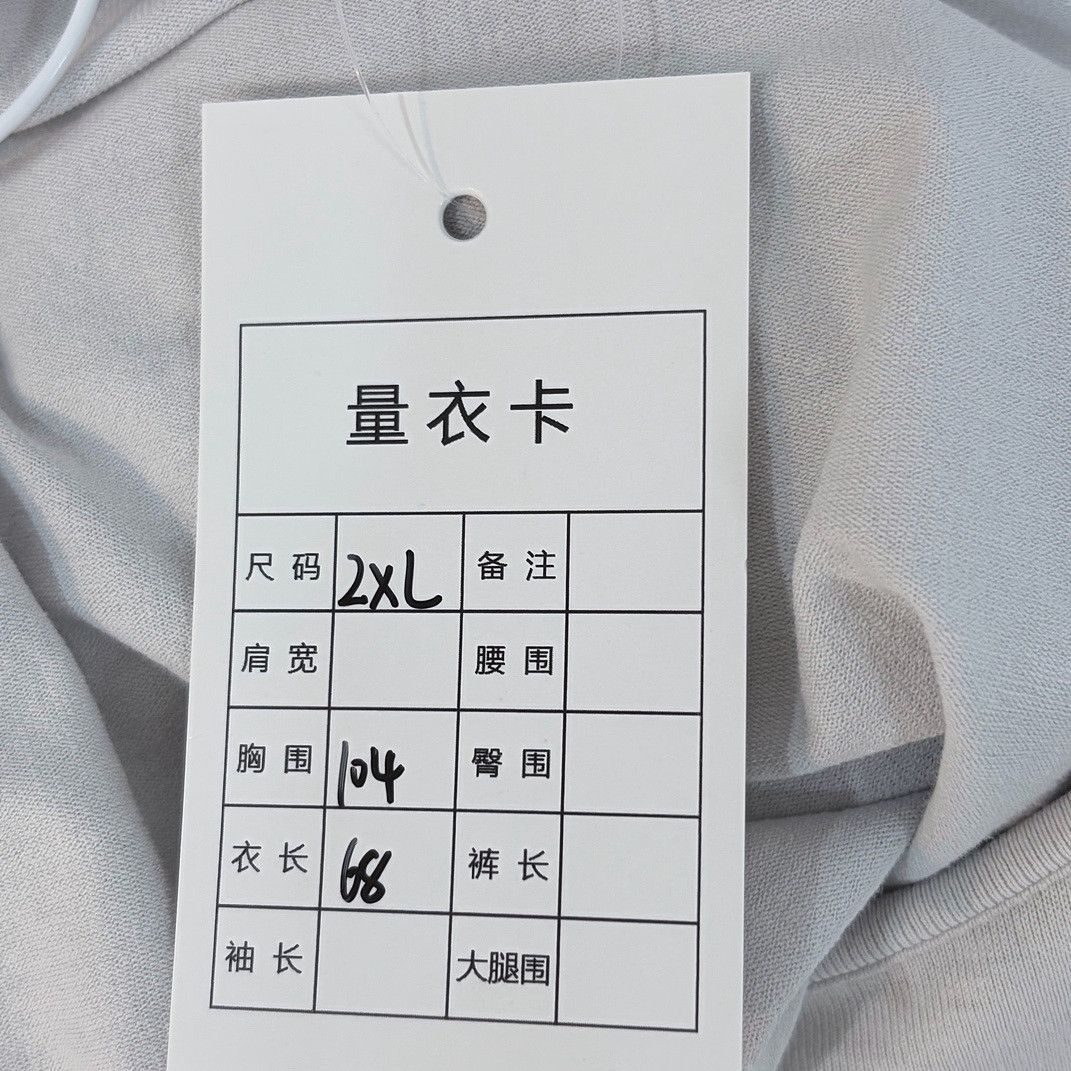 量衣卡
尺码 2XL 备注
肩宽 腰围
胸围 104 臀围
衣长 68 裤长
袖长 大腿围